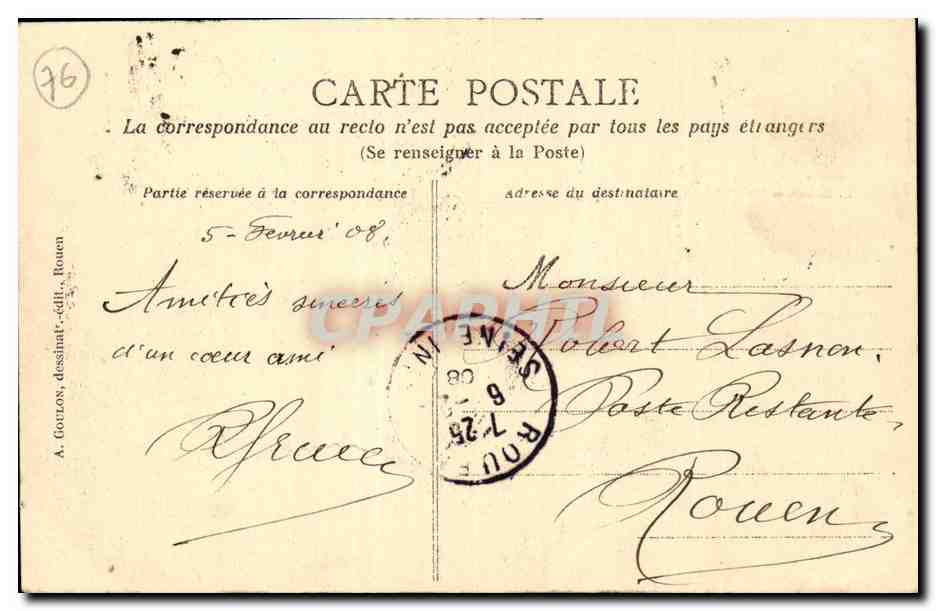 76
CARTE POSTALE
La correspondance au recto n'est pas acceptée par tous les pays étrangers
(Se renseigner à la Poste)
Partie réservée à la correspondance
5 - Fevrier 08.
Amitiés sincères
d'un cœur ami
Adresse du destinataire
Monsieur
Robert Lasnon,
Poste Restante
Rouen
ROUE
SEINE IN
7 25
6
08
CPAPHIL
A. GOULON, dessinatr.-édit., Rouen